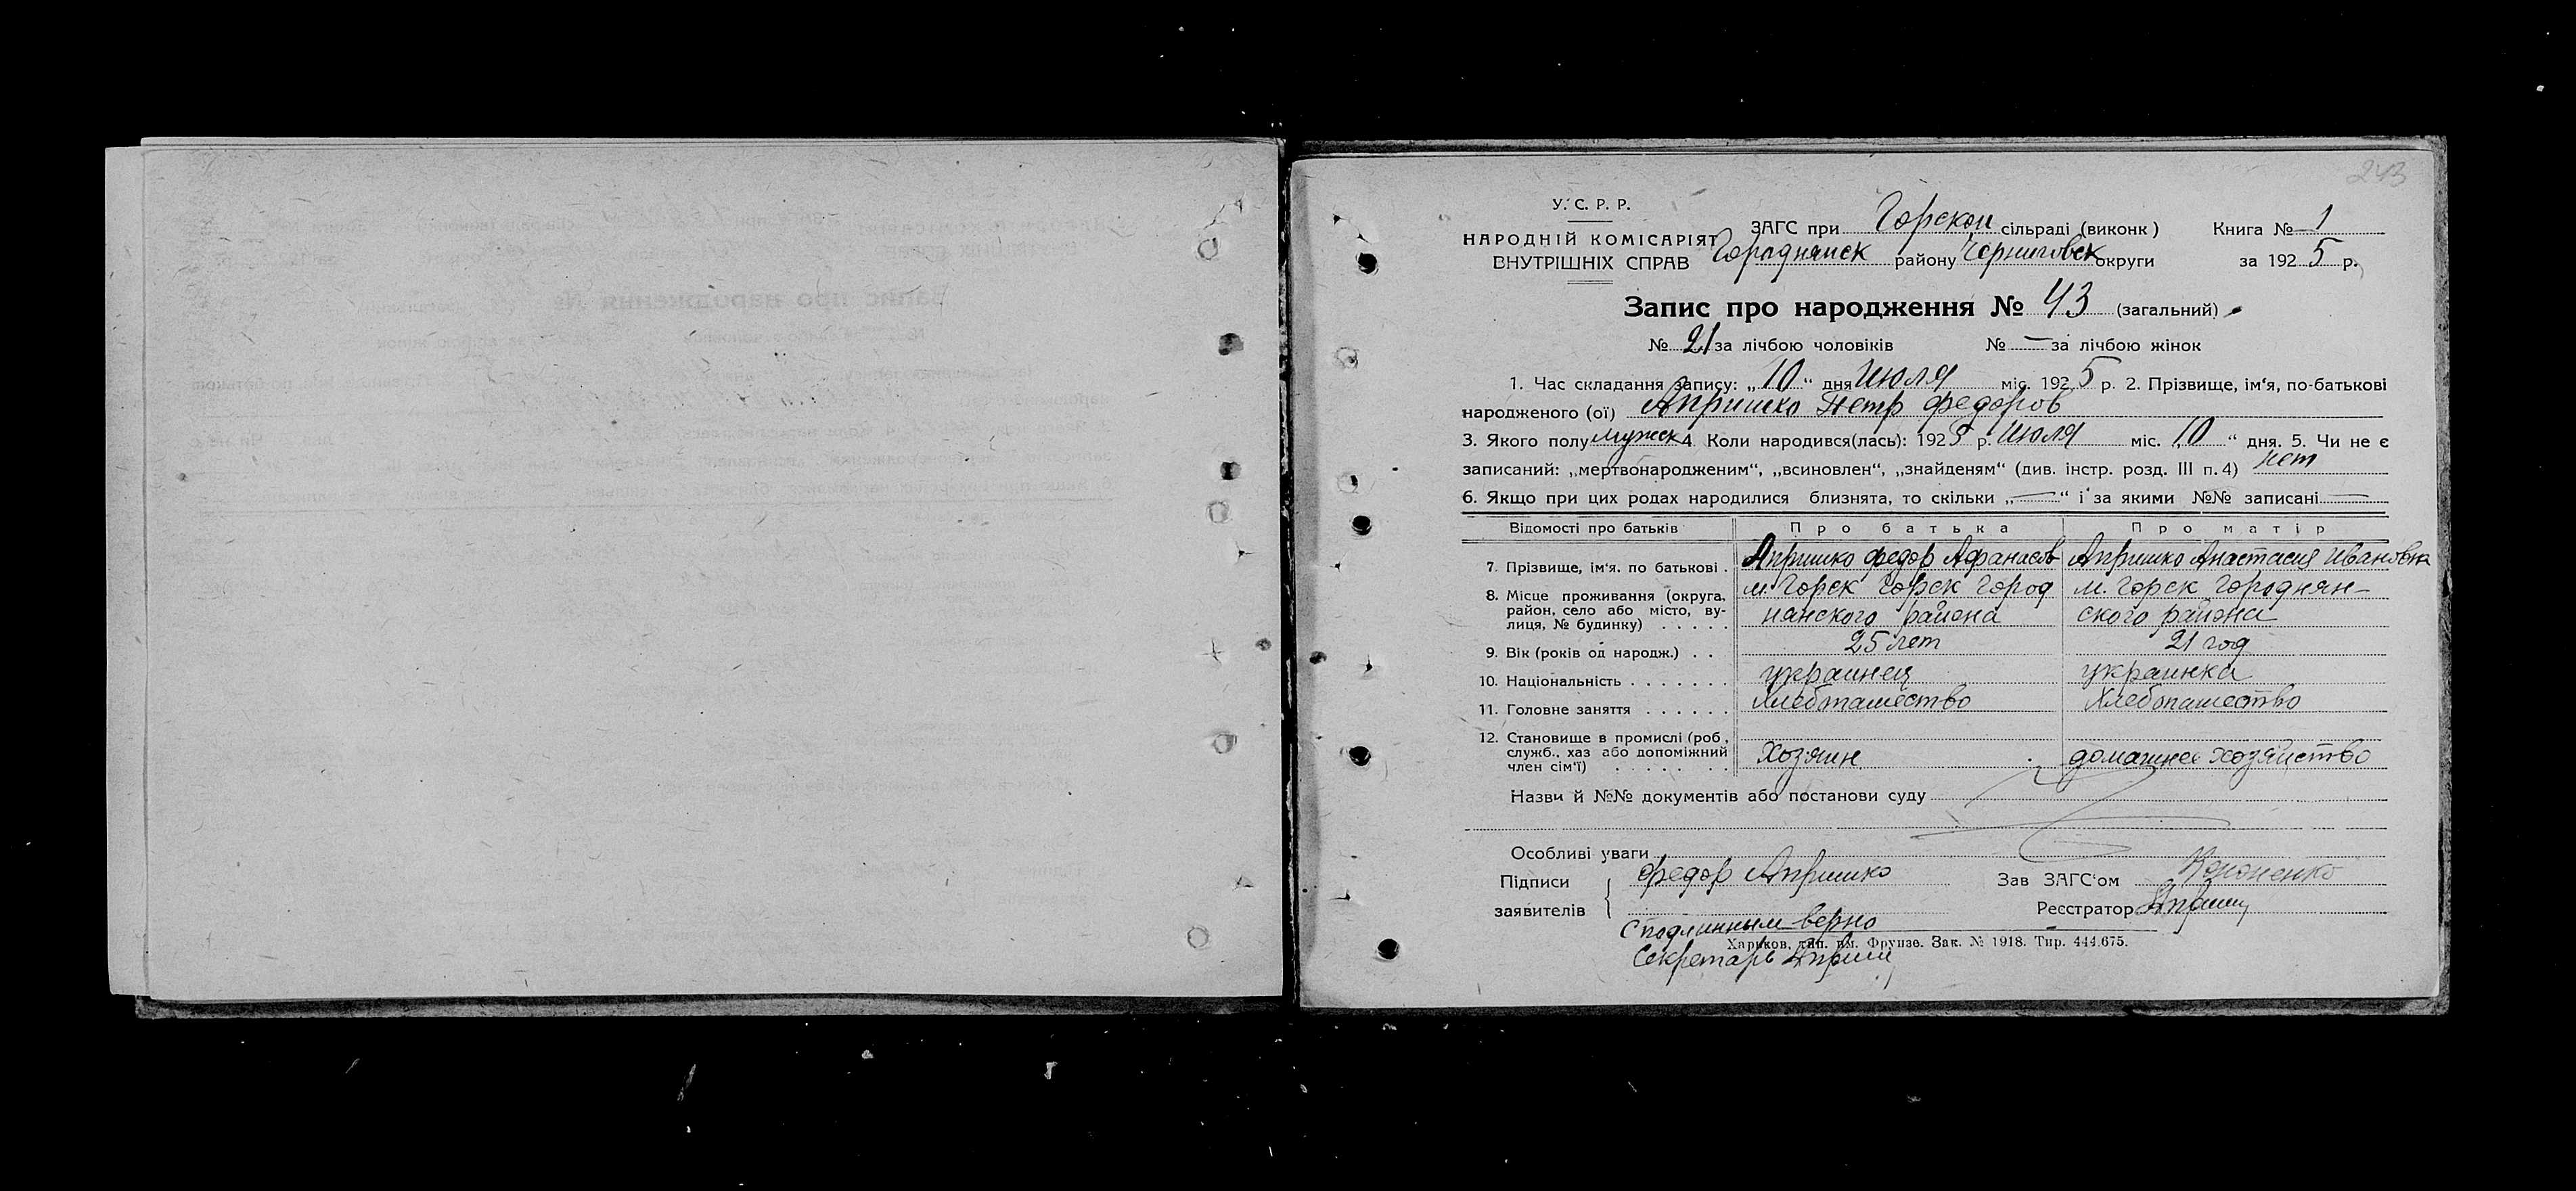 243
У. С. Р. Р.
НАРОДНІЙ КОМІСАРІЯТ
ВНУТРІШНІХ СПРАВ
ЗАГС при Горском сільраді (виконк) Книга № 1
Городнянск району Черниговск округи за 1925 р.
Запис про народження № 43 (загальний)
№ 21 за лічбою чоловіків № — за лічбою жінок
1. Час складання запису: „10" дня Июля міс. 1925 р. 2. Прізвище, ім'я, по-батькові
народженого (ої) Апришко Петр Федоров
3. Якого полу мужск 4. Коли народився(лась): 1925 р. Июля міс. „10" дня. 5. Чи не є
записаний: „мертвонародженим", „всиновлен", „знайденям" (див. інстр. розд. III п. 4) нет
6. Якщо при цих родах народилися близнята, то скільки „—" і за якими №№ записані —
Відомості про батьків Про батька Про матір
7. Прізвище, ім'я. по батькові . Апришко Федор Афанасов Апришко Анастасия Ивановна
8. Місце проживання (округа, район, село або місто, вулиця, № будинку) . . . . . м. Горск Горск Город м. Горск Городнян-
нянского района ского района
9. Вік (років од народж.) . . 25 лет 21 год
10. Національність . . . . . . . украинец украинка
11. Головне заняття . . . . . . Хлебопашество Хлебопашество
12. Становище в промислі (роб, служб., хаз або допоміжний член сім'ї) . . . . . . . Хозяин домашнее хозяйство
Назви й №№ документів або постанови суду
Особливі уваги
Підписи заявителів Федор Апришко
Зав ЗАГС'ом Кононенко
Реєстратор Апришк
С подлинным верно
Харьков, тип. им. Фрунзе. Зак. № 1918. Тир. 444.675.
Секретарь Апришк